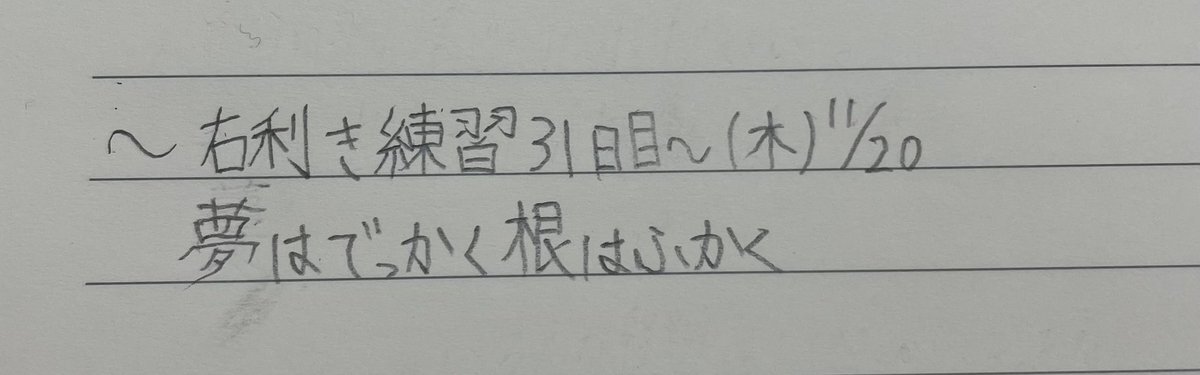 ～右利き練習31日目～(木)11/20
夢はでっかく根はふかく